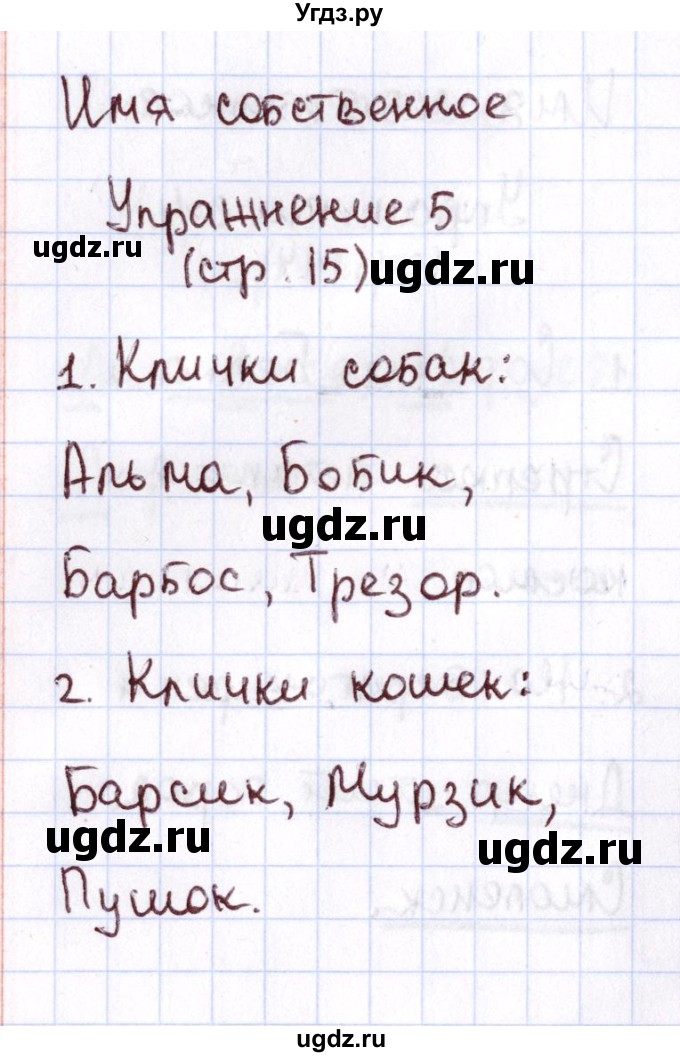 Угдз.ру
Имя собственное
Упражнение 5
ugdz.ru
(стр. 15) ugdz.ru
1. Клички собак:
Альма, Бобик,
ugdz.ru
Барбос, Трезор.
2. Клички кошек:
Барсик, Мурзик,
ugdz.ru
ugdz.ru
Пушок.
ugdz.ru